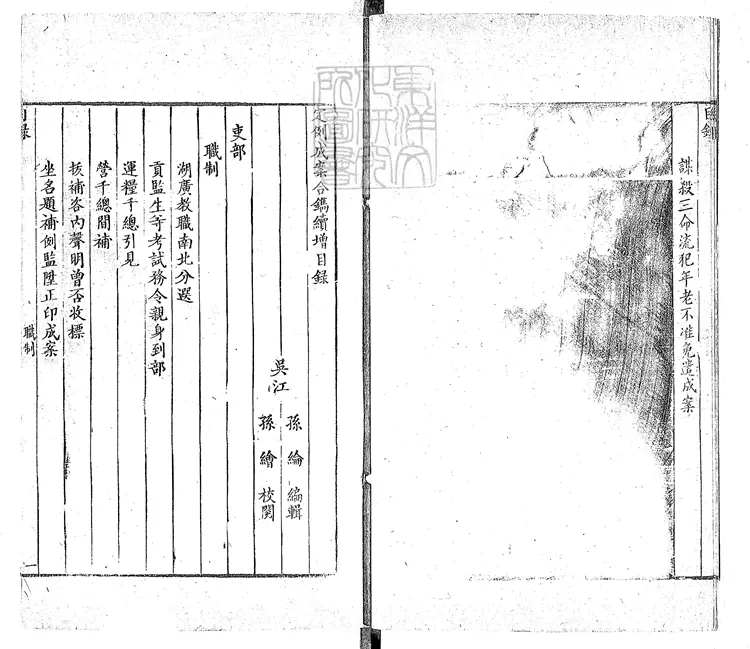 目錄
謀殺三命流犯年老不准免遣成案
東洋文化研究所圖書
定例成案合鐫續增目錄
吳江
孫綸編輯
孫繪校閱
吏部
職制
湖廣教職南北分選
貢監生等考試務令親身到部
運糧千總引見
營千總間補
拔補咨內聲明曾否收標
坐名題補例監陞正印成案
目錄
職制
一